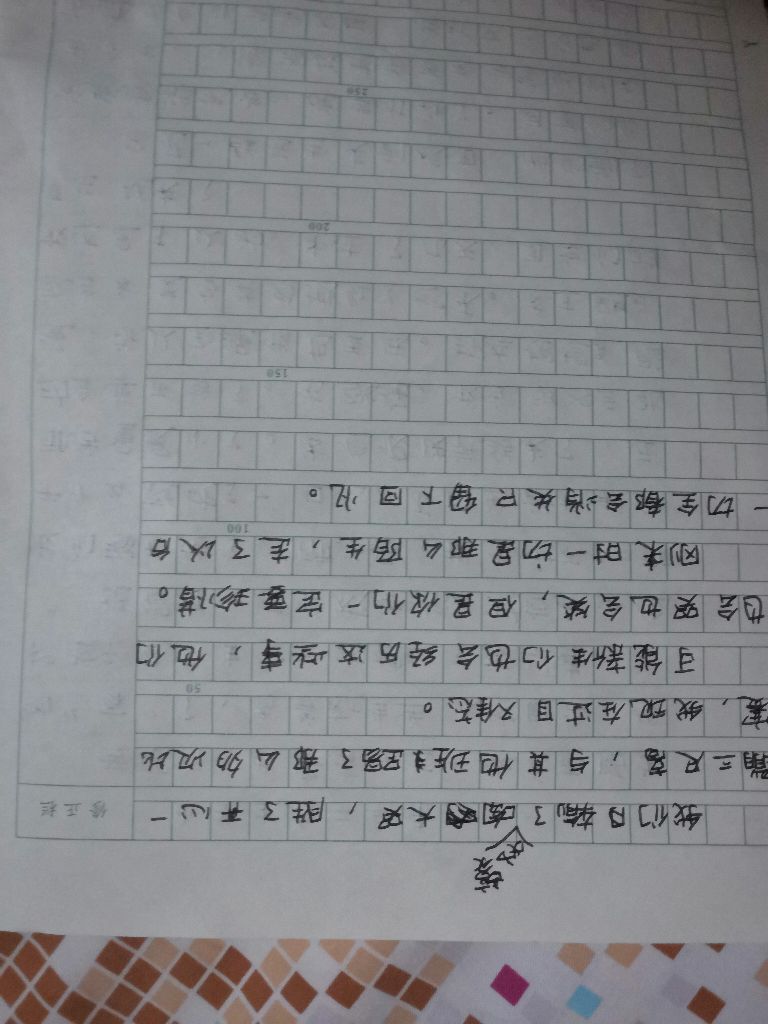 我们 输了 大哭，胜了开心一
蹦三尺高，与其他班 了那么多次比
赛，我现在过目又难忘。
50
可能新生们也会经历这些事，他们
也会哭也会笑，但是你们一定要珍惜。
刚来时一切是那么陌生，走了以后
100
一切全都会消失只留下回忆。
150
200
250
修正栏